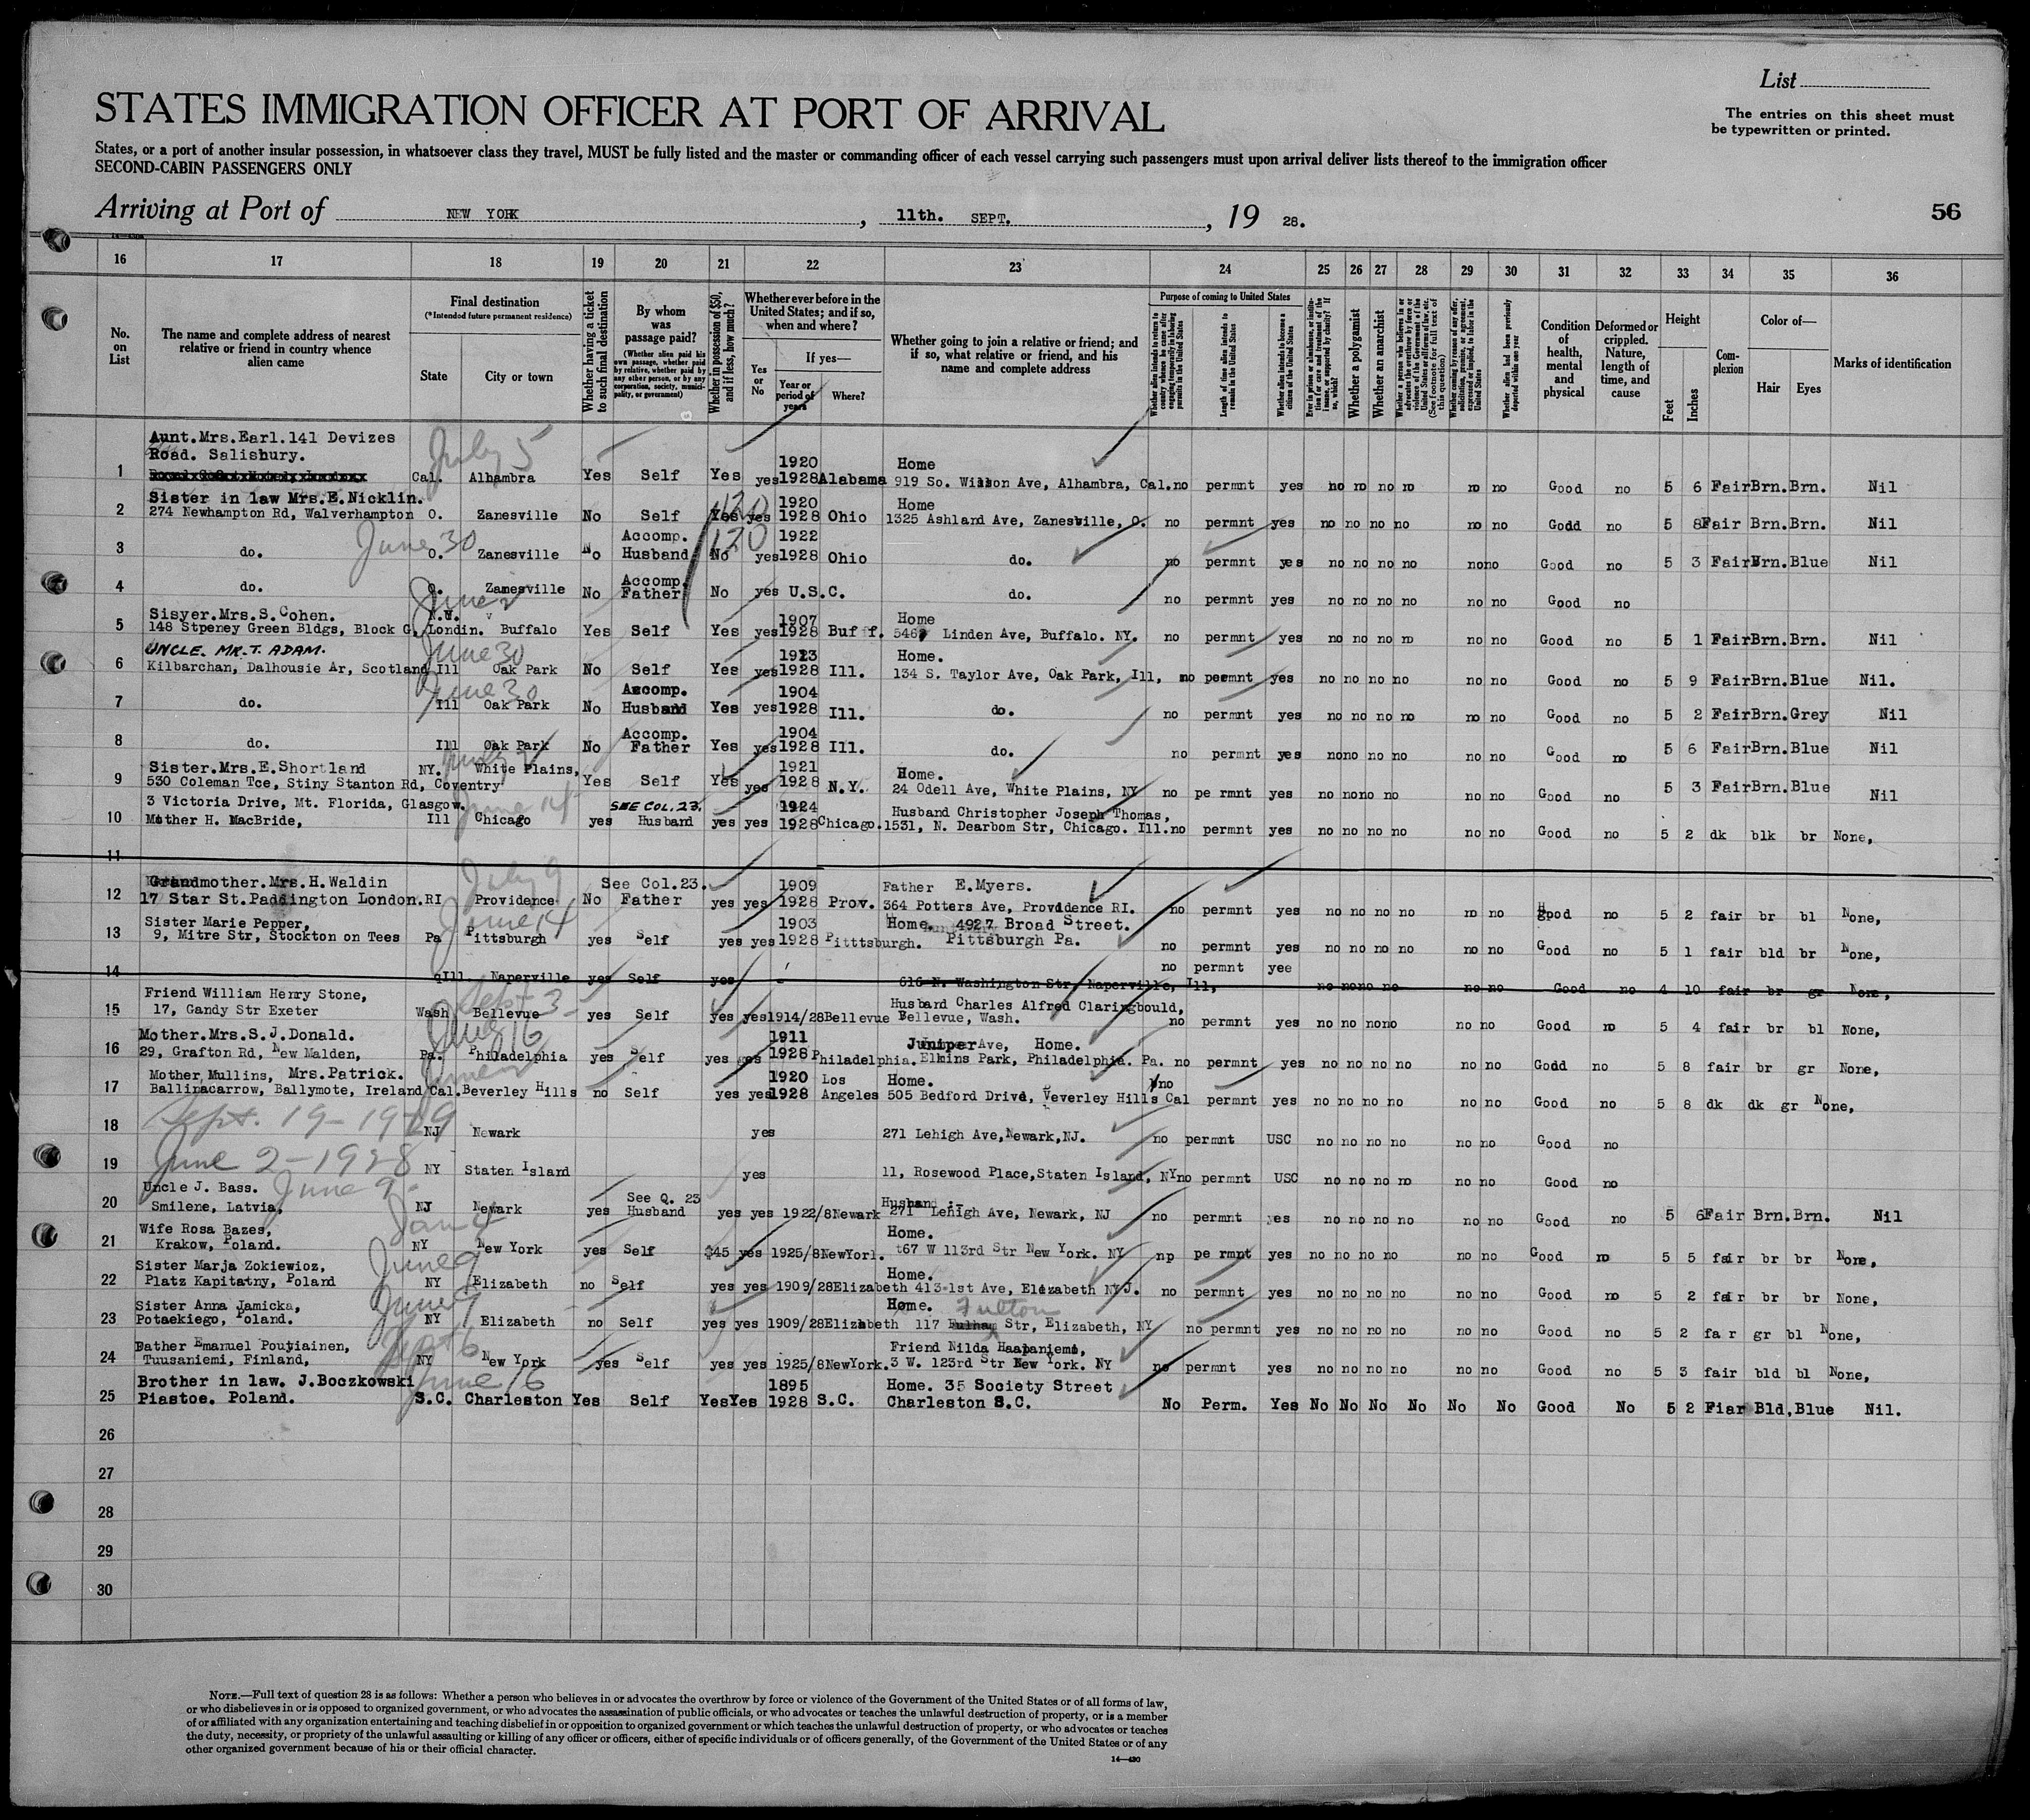 List
The entries on this sheet must
be typewritten or printed.
STATES IMMIGRATION OFFICER AT PORT OF ARRIVAL
States, or a port of another insular possession, in whatsoever class they travel, MUST be fully listed and the master or commanding officer of each vessel carrying such passengers must upon arrival deliver lists thereof to the immigration officer
SECOND-CABIN PASSENGERS ONLY
Arriving at Port of NEW YORK, 11th. SEPT., 19 28.
56
16 17 18 19 20 21 22 23 24 25 26 27 28 29 30 31 32 33 34 35 36
No. on List
The name and complete address of nearest relative or friend in country whence alien came
Final destination
(*Intended future permanent residence)
State
City or town
Whether having a ticket to such final destination
By whom was passage paid?
(Whether alien paid his own passage, whether paid by relative, whether paid by any other person, or by any corporation, society, municipality, or government)
Whether in possession of $50, and if less, how much?
Whether ever before in the United States; and if so, when and where?
Yes or No
If yes—
Year or period of years
Where?
Whether going to join a relative or friend; and if so, what relative or friend, and his name and complete address
Purpose of coming to United States
Length of time alien intends to remain in the United States
Whether alien intends to become a citizen of the United States
Whether a polygamist
Whether an anarchist
Whether alien had been previously deported within one year
Condition of health, mental and physical
Deformed or crippled. Nature, length of time, and cause
Height
Feet
Inches
Complexion
Color of—
Hair
Eyes
Marks of identification
Aunt.Mrs.Earl.141 Devizes
Road. Salisbury. July 5 1920 Home
1 Cal. Alhambra Yes Self Yes yes 1928 Alabama 919 So. Wilson Ave, Alhambra, Cal. no permnt yes no no no no no no Good no 5 6 Fair Brn. Brn. Nil
Sister in law Mrs.E.Nicklin. 1920 Home
2 274 Newhampton Rd, Walverhampton O. Zanesville No Self Yes 120 yes 1928 Ohio 1325 Ashland Ave, Zanesville, O. no permnt yes no no no no no no Godd no 5 8 Fair Brn. Brn. Nil
June 30 Accomp. 120 1922
3 do. O. Zanesville No Husband No yes 1928 Ohio do. no permnt yes no no no no no no Good no 5 3 Fair Brn. Blue Nil
Accomp.
4 do. O. Zanesville No Father No yes U.S.C. do. no permnt yes no no no no no no Good no
Sisyer.Mrs.S.Cohen. June 2 N.Y. 1907 Home
5 148 Stpeney Green Bldgs, Block G, Londin. Buffalo Yes Self Yes yes 1928 Buff. 546 Linden Ave, Buffalo. NY. no permnt yes no no no no no no Good no 5 1 Fair Brn. Brn. Nil
UNCLE. MR.T. ADAM. June 30 1923 Home.
6 Kilbarchan, Dalhousie Ar, Scotland Ill Oak Park No Self Yes yes 1928 Ill. 134 S. Taylor Ave, Oak Park, Ill, no permnt yes no no no no no no Good no 5 9 Fair Brn. Blue Nil.
June 30 Accomp. 1904
7 do. Ill Oak Park No Husband Yes yes 1928 Ill. do. no permnt yes no no no no no no Good no 5 2 Fair Brn. Grey Nil
Accomp. 1904
8 do. Ill Oak Park No Father Yes yes 1928 Ill. do. no permnt yes no no no no no no Good no 5 6 Fair Brn. Blue Nil
Sister.Mrs.E.Shortland NY. White Plains, 1921 Home.
9 530 Coleman Tce, Stiny Stanton Rd, Coventry Yes Self Yes yes 1928 N.Y. 24 Odell Ave, White Plains, NY no pe rmnt yes no no no no no no Good no 5 3 Fair Brn. Blue Nil
3 Victoria Drive, Mt. Florida, Glasgow. June 14 SEE COL. 23. 1924 Husband Christopher Joseph Thomas,
10 Mother H. MacBride, Ill Chicago yes Husband yes yes 1928 Chicago. 1531, N. Dearbom Str, Chicago. Ill. no permnt yes no no no no no no Good no 5 2 dk blk br None,
11
Grandmother.Mrs.H.Waldin July 9 See Col.23. 1909 Father E.Myers.
12 17 Star St.Paddington London. RI Providence No Father yes yes 1928 Prov. 364 Potters Ave, Providence RI. no permnt yes no no no no no no good no 5 2 fair br bl None,
Sister Marie Pepper, June 14 1903 Home. 4927 Broad Street.
13 9, Mitre Str, Stockton on Tees Pa Pittsburgh yes Self yes yes 1928 Pitttsburgh. Pittsburgh Pa. no permnt yes no no no no no no Good no 5 1 fair bld br None,
no permnt yee
14 Ill. Naperville yes Self yes 616 N. Washington Str, Naperville, Ill, no no no no no no Good no 4 10 fair br gr None,
Friend William Henry Stone, Sept 3 Husbard Charles Alfred Claringbould,
15 17, Gandy Str Exeter Wash Bellevue yes Self yes yes 1914/28 Bellevue Bellevue, Wash. no permnt yes no no no no no no Good no 5 4 fair br bl None,
Mother.Mrs.S.J.Donald. June 16 1911 Juniper Ave, Home.
16 29, Grafton Rd, New Malden, Pa. Philadelphia yes Self yes yes 1928 Philadelphia. Elkins Park, Philadelphia. Pa. no permnt yes no no no no no no Godd no 5 8 fair br gr None,
Mother, Mullins, Mrs.Patrick. 1920 Los Home. no
17 Ballinacarrow, Ballymote, Ireland Cal. Beverley Hills no Self yes yes 1928 Angeles 505 Bedford Drive, Veverley Hills Cal permnt yes no no no no no no Good no 5 8 dk dk gr None,
Sept. 19-1929
18 NJ Newark yes 271 Lehigh Ave,Newark,NJ. no permnt USC no no no no no no Good no
June 2-1928
19 NY Staten Island yes 11, Rosewood Place,Staten Island, NY no permnt USC no no no no no no Good no
Uncle J. Bass. June 9 See Q. 23 Husband :-
20 Smilene, Latvia, NJ Newark yes Husband yes yes 1922/8 Newark 271 Lehigh Ave, Newark, NJ no permnt yes no no no no no no Good no 5 6 Fair Brn. Brn. Nil
Wife Rosa Bazes, Jan 4 Home.
21 Krakow, Poland. NY New York yes Self $45 yes 1925/8 NewYorl. t67 W 113rd Str New York. NY np pe rmnt yes no no no no no no Good no 5 5 fair br br None,
Sister Marja Zokiewioz, June 9 Home.
22 Platz Kapitatny, Poland NY Elizabeth no Self yes yes 1909/28 Elizabeth 413-1st Ave, Elezabeth NYJ. no permnt yes no no no no no no Good no 5 2 fair br br None,
Sister Anna Jamicka, June 9 Home. Fulton
23 Potaekiego, Poland. NY Elizabeth no Self yes yes 1909/28 Elizabeth 117 Fulham Str, Elizabeth, NY no permnt yes no no no no no no Good no 5 2 fa r gr bl None,
Bather Emanuel Poutiainen, Sept 6 Friend Nilda Haapaniemi,
24 Tuusaniemi, Finland, NY New York yes Self yes yes 1925/8 NewYork. 3 W. 123rd Str New York. NY no permnt yes no no no no no no Good no 5 3 fair bld bl None,
Brother in law. J.Boczkowski June 16 1895 Home. 35 Society Street
25 Piastoe. Poland. S.C. Charleston Yes Self Yes Yes 1928 S.C. Charleston S.C. No Perm. Yes No No No No No No Good No 5 2 Fiar Bld, Blue Nil.
26
27
28
29
30
NOTE.—Full text of question 28 is as follows: Whether a person who believes in or advocates the overthrow by force or violence of the Government of the United States or of all forms of law,
or who disbelieves in or is opposed to organized government, or who advocates the assassination of public officials, or who advocates or teaches the unlawful destruction of property, or is a member
of or affiliated with any organization entertaining and teaching disbelief in or opposition to organized government or which teaches the unlawful destruction of property, or who advocates or teaches
the duty, necessity, or propriety of the unlawful assaulting or killing of any officer or officers, either of specific individuals or of officers generally, of the Government of the United States or of any
other organized government because of his or their official character.
14—430